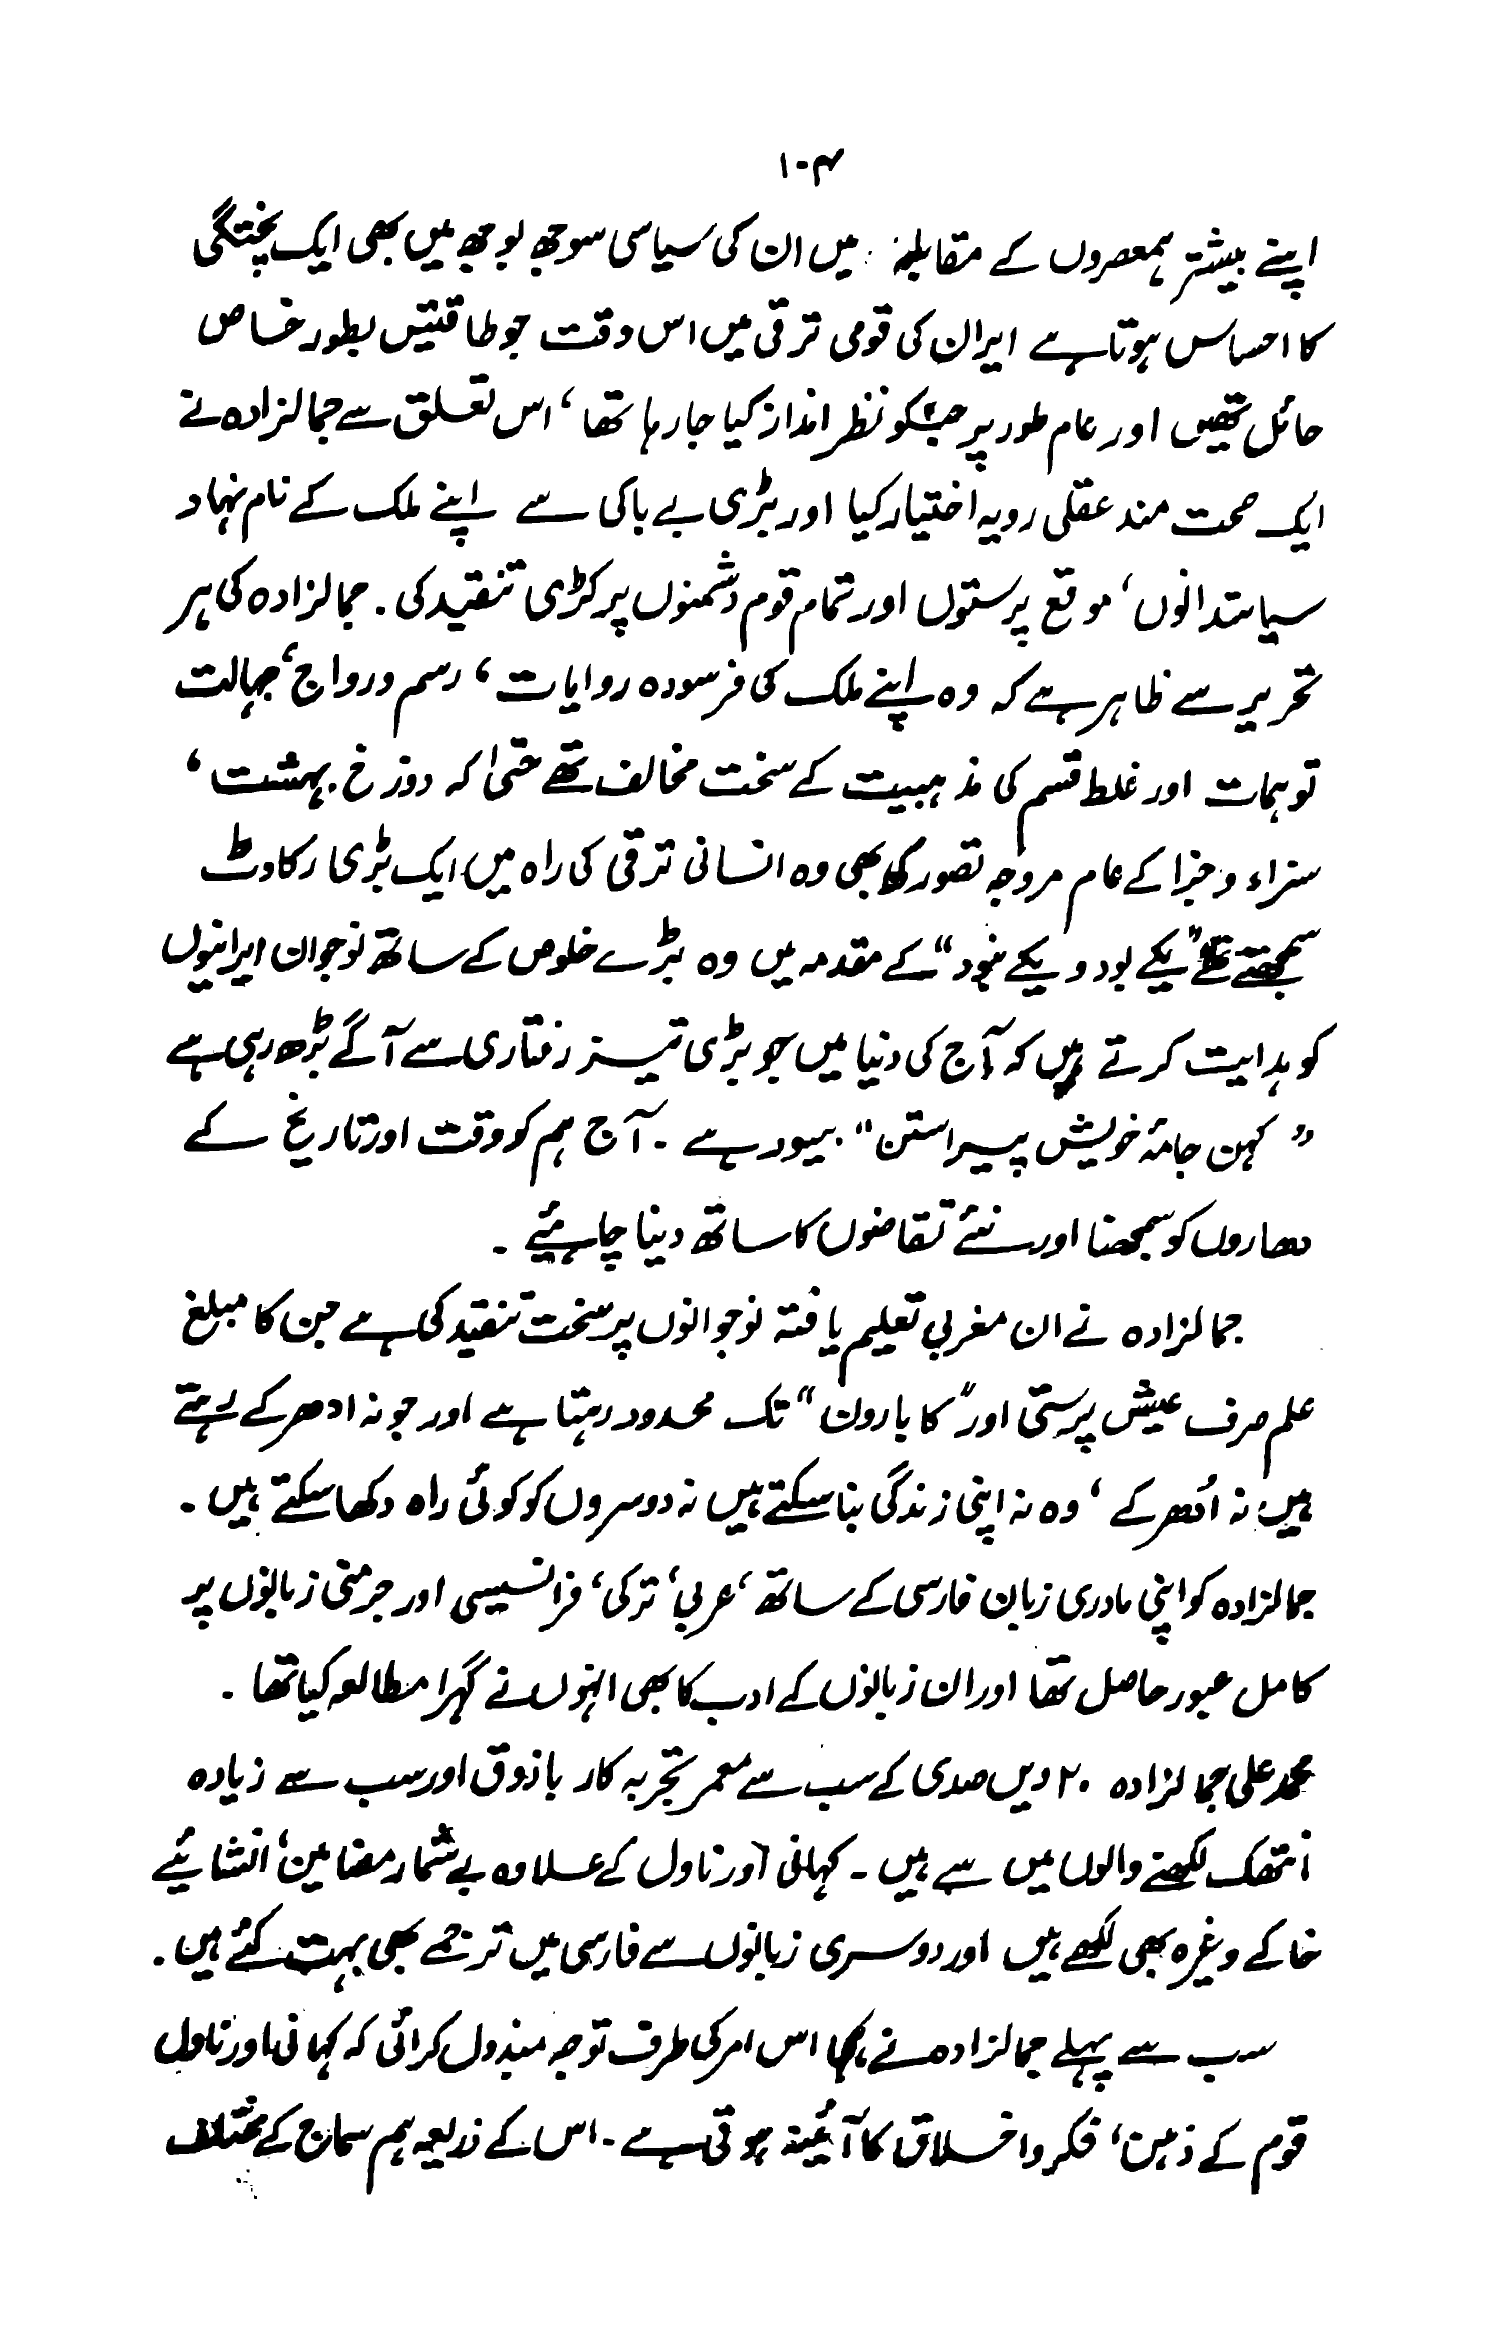 ۱۰۴
اپنے بیشتر ہمعصروں کے مقابلہ میں ان کی سیاسی سوجھ بوجھ میں بھی ایک پختگی
کا احساس ہوتا ہے ایران کی قومی ترقی میں اس وقت جو طاقتیں بطور خاص
حائل تھیں اور عام طور پر جنکو نظر انداز کیا جا رہا تھا، اس تعلق سے جمالزادہ نے
ایک صحت مند عقلی رویہ اختیار کیا اور بڑی بے باکی سے اپنے ملک کے نام نہاد
سیاستدانوں، موقع پرستوں اور تمام قوم دشمنوں پر کڑی تنقید کی۔ جمالزادہ کی ہر
تحریر سے ظاہر ہے کہ وہ اپنے ملک کی فرسودہ روایات، رسم و رواج، جہالت
توہمات اور غلط قسم کی مذہبیت کے سخت مخالف تھے حتیٰ کہ دوزخ۔ بہشت،
سزاء و جزا کے عام مروجہ تصور کو بھی وہ انسانی ترقی کی راہ میں ایک بڑی رکاوٹ
سمجھتے تھے "یکے بود و یکے نبود" کے مقدمہ میں وہ بڑے خلوص کے ساتھ نوجوان ایرانیوں
کو ہدایت کرتے ہیں کہ آج کی دنیا میں جو بڑی تیز رفتاری سے آگے بڑھ رہی ہے
"کہن جامۂ خویش پیراستن" بیسود ہے۔ آج ہم کو وقت اور تاریخ کے
دھاروں کو سمجھنا اور نئے تقاضوں کا ساتھ دینا چاہئیے۔
جمالزادہ نے ان مغربی تعلیم یافتہ نوجوانوں پر سخت تنقید کی ہے جن کا مبلغ
علم صرف عیش پرستی اور "کاباروں" تک محدود رہتا ہے اور جو نہ ادھر کے رہتے
ہیں نہ اُدھر کے، وہ نہ اپنی زندگی بنا سکتے ہیں نہ دوسروں کو کوئی راہ دکھا سکتے ہیں۔
جمالزادہ کو اپنی مادری زبان فارسی کے ساتھ، عربی، ترکی، فرانسیسی اور جرمنی زبانوں پر
کامل عبور حاصل تھا اور ان زبانوں کے ادب کا بھی انہوں نے گہرا مطالعہ کیا تھا۔
محمد علی جمالزادہ ۲۰ ویں صدی کے سب سے معمر تجربہ کار باذوق اور سب سے زیادہ
انتھک لکھنے والوں میں سے ہیں۔ کہانی اور ناول کے علاوہ بے شمار مضامین، انشائیے
خاکے وغیرہ بھی لکھے ہیں اور دوسری زبانوں سے فارسی میں ترجمے بھی بہت کئے ہیں۔
سب سے پہلے جمالزادہ نے اس امر کی طرف توجہ مبذول کرائی کہ کہانی اور ناول
قوم کے ذہن، فکر و اخلاق کا آئینہ ہوتی ہے۔ اس کے ذریعہ ہم سماج کے مختلف